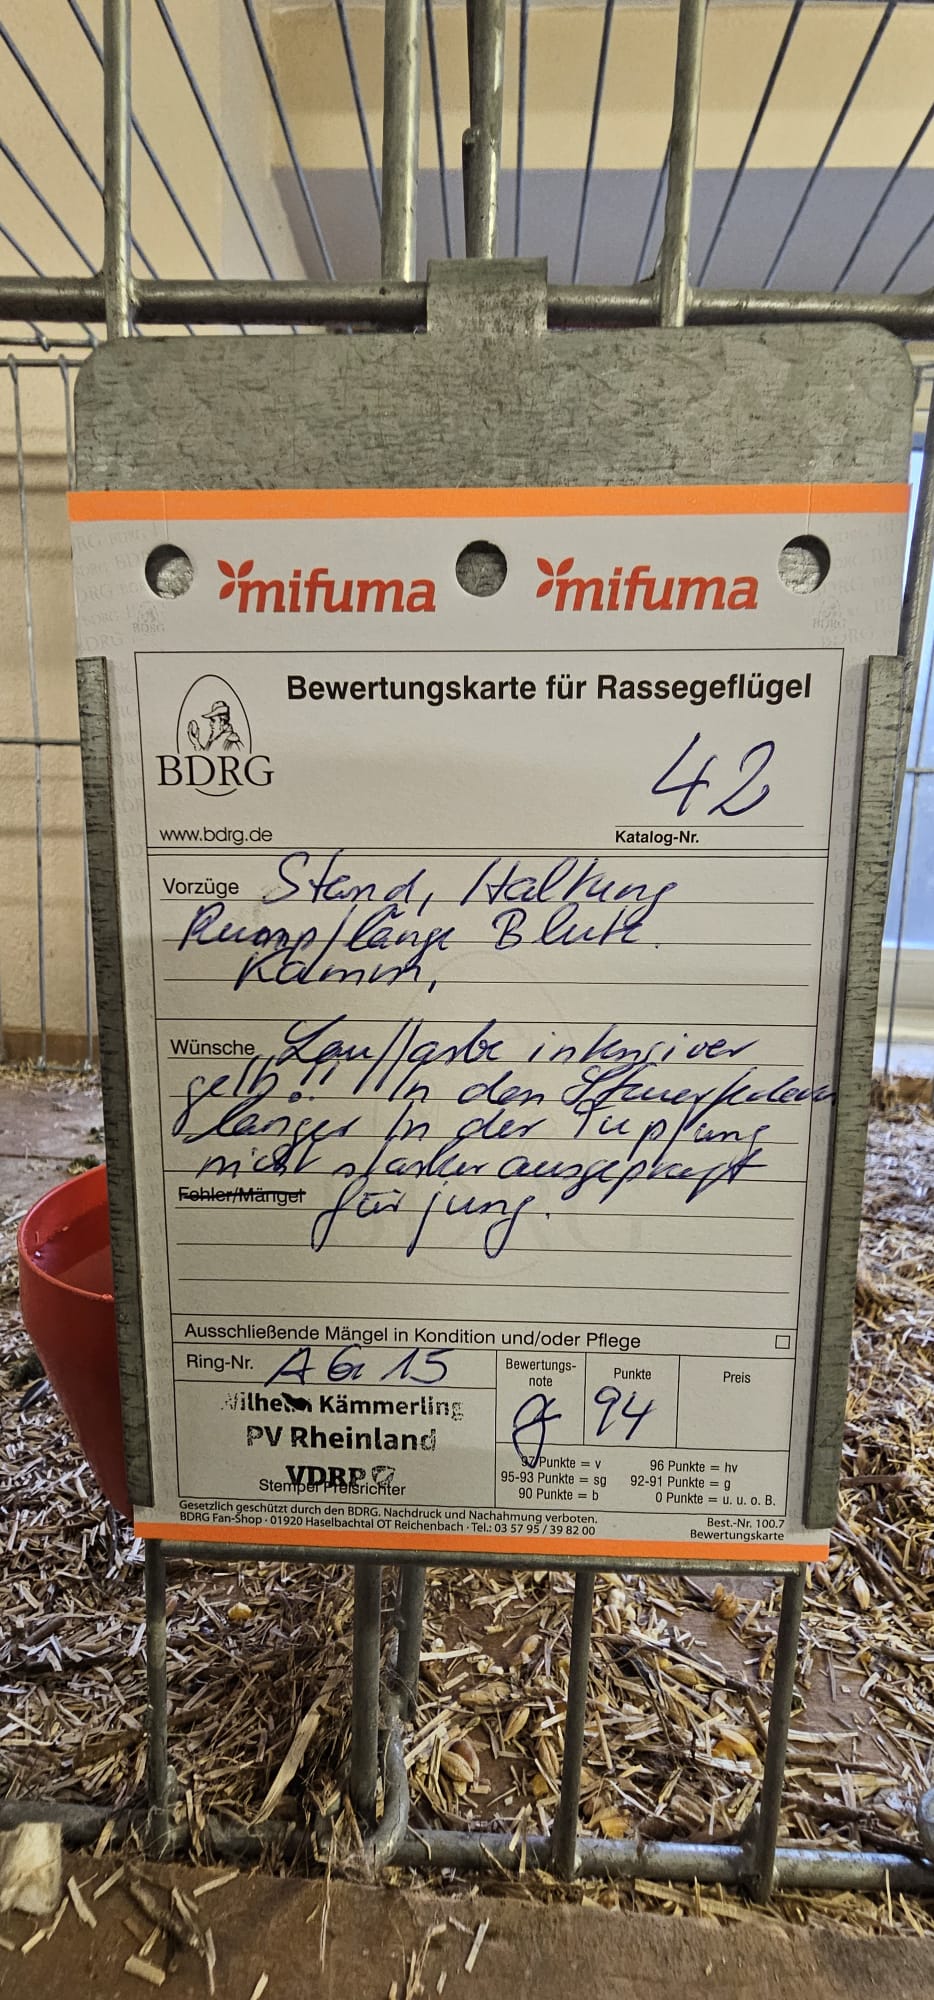 mifuma mifuma
Bewertungskarte für Rassegeflügel
BDRG
42
www.bdrg.de
Katalog-Nr.
Vorzüge Stand, Haltung
Rumpflänge Blute.
Kamm,
Wünsche Lauffarbe intensiver
gelb!! In den Steuerfedern
länger In der Tupfung
nicht starker ausgeprägt
Fehler/Mängel für jung.
Ausschließende Mängel in Kondition und/oder Pflege
Ring-Nr. AG 15
Bewertungs-
note
Punkte 94
Preis
Wilhelm Kämmerling
PV Rheinland
VDRP
Stempel Preisrichter
97 Punkte = v 96 Punkte = hv
95-93 Punkte = sg 92-91 Punkte = g
90 Punkte = b 0 Punkte = u. u. o. B.
Gesetzlich geschützt durch den BDRG. Nachdruck und Nachahmung verboten.
BDRG Fan-Shop · 01920 Haselbachtal OT Reichenbach · Tel.: 03 57 95 / 39 82 00
Best.-Nr. 100.7
Bewertungskarte